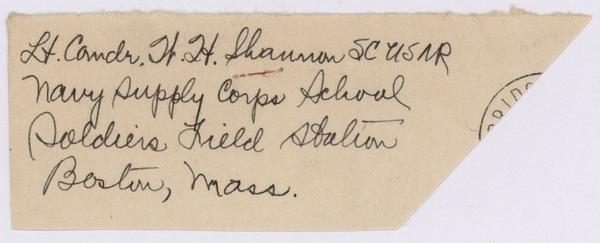 Lt. Comdr. W. H. Shannon SC USNR
Navy Supply Corps School
Soldiers Field Station
Boston, Mass.